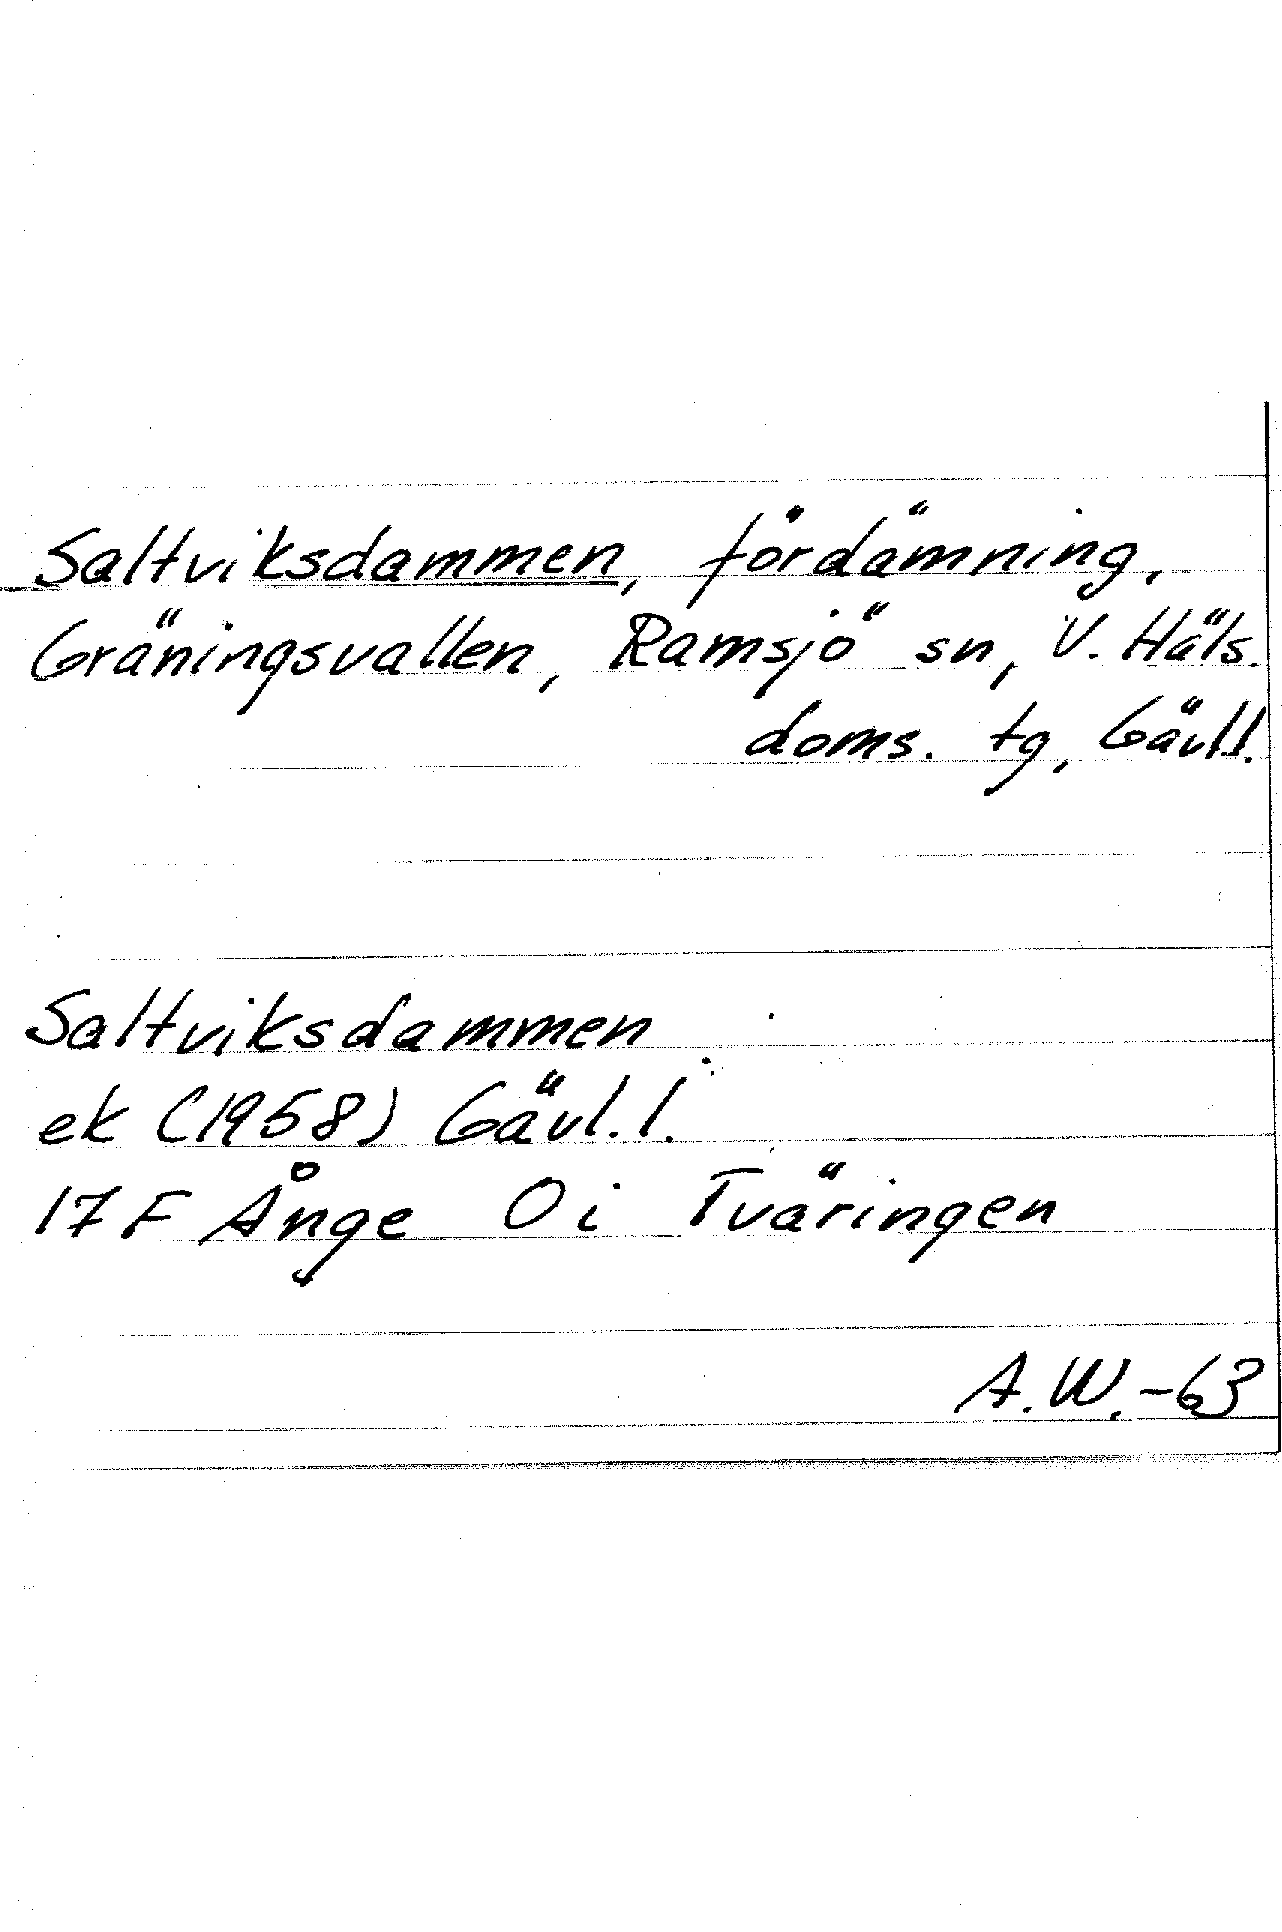 Saltviksdammen, fördämning,
Gräningsvallen, Ramsjö sn, V. Häls.
doms. tg, Gävl.l.
Saltviksdammen
ek (1958) Gävl.l.
17 F Ånge Oi Tväringen
A.W.-63